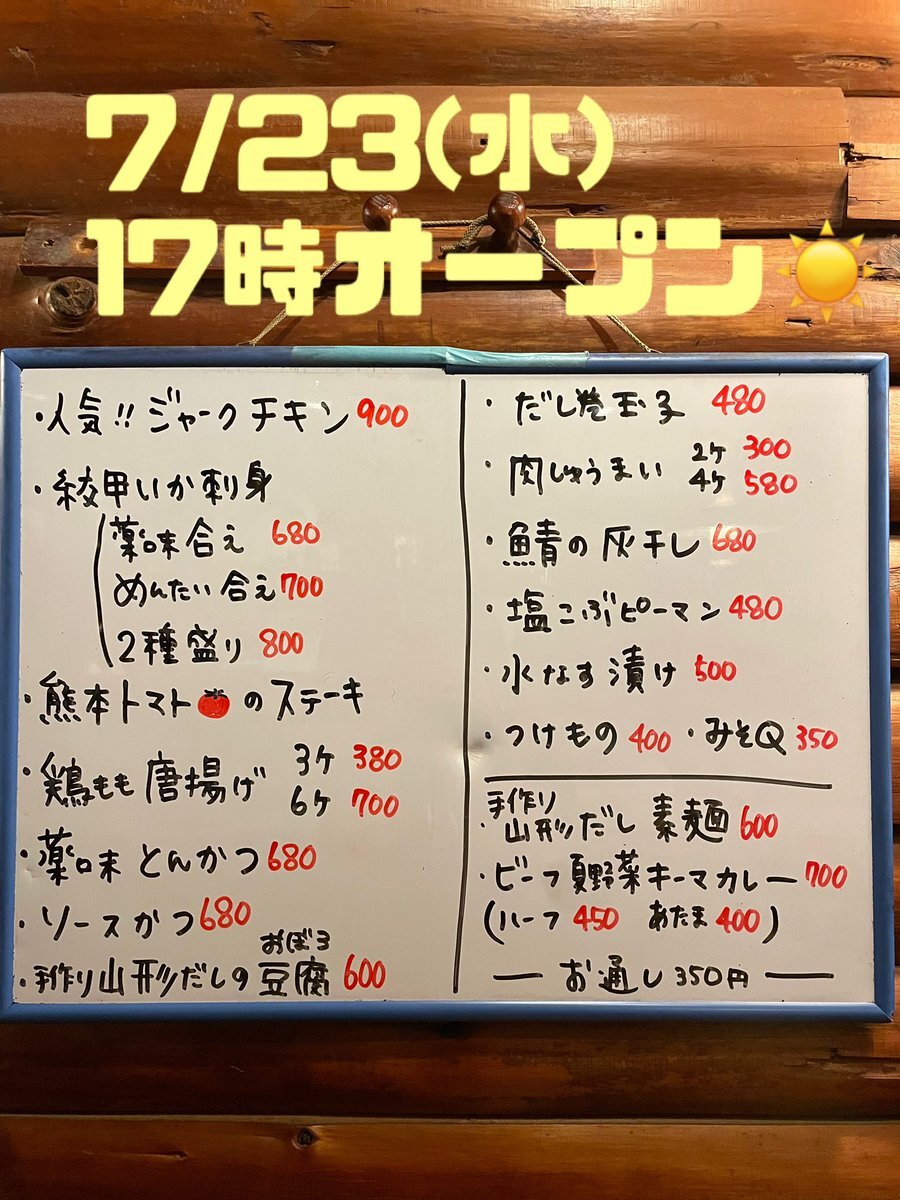 7/23(水)
17時オープン☀️
・人気!! ジャークチキン 900
・綾甲いか刺身
薬味合え 680
めんたい合え 700
2種盛り 800
・熊本トマト🍅のステーキ
・鶏もも唐揚げ 3ケ 380
6ケ 700
・薬味とんかつ 680
・ソースかつ 680
・手作り山形だしのおぼろ豆腐 600
・だし巻玉子 480
・肉しゅうまい 2ケ 300
4ケ 580
・鯖の灰干し 680
・塩こぶピーマン 480
・水なす漬け 500
・つけもの 400 ・みそQ 350
・手作り山形だし素麺 600
・ビーフ夏野菜キーマカレー 700
(ハーフ 450 あたま 400)
— お通し 350円 —